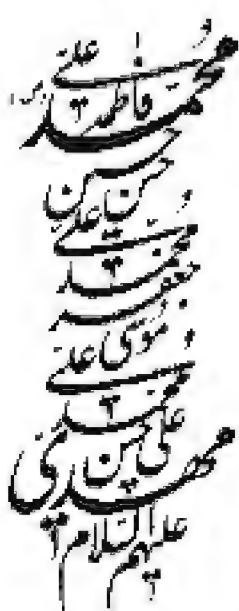 محمد و علی
فاطمه
حسن حسین
علی و محمد
جعفر
موسی و علی
محمد
علی حسن
مهدی
علیهم السلام